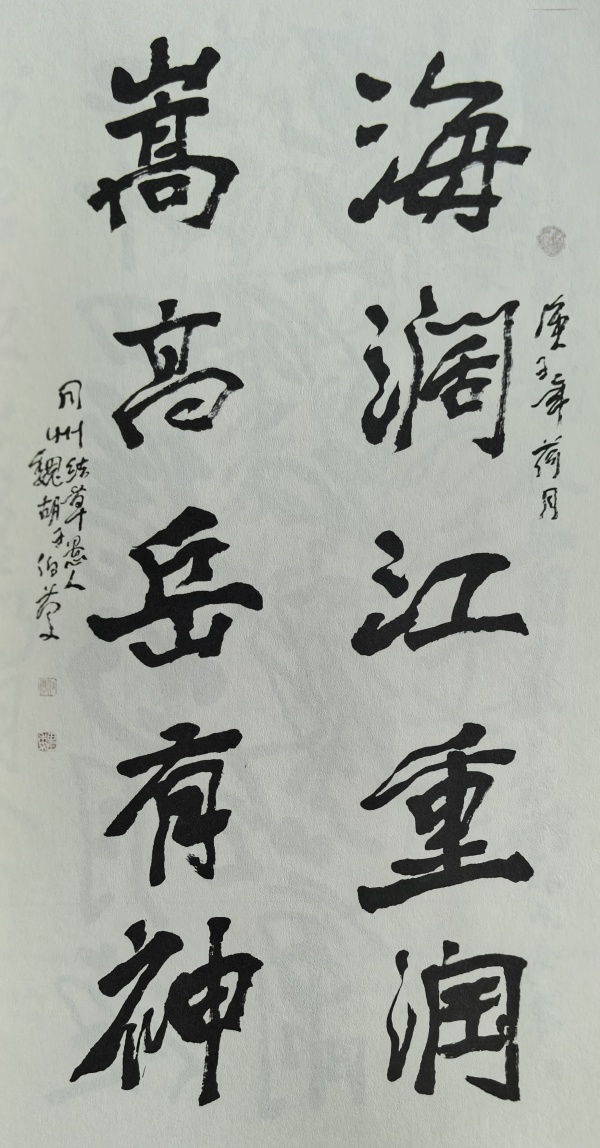 庚子年荷月
海阔江重润
嵩高岳有神
同州结草愚人
魏胡子伯